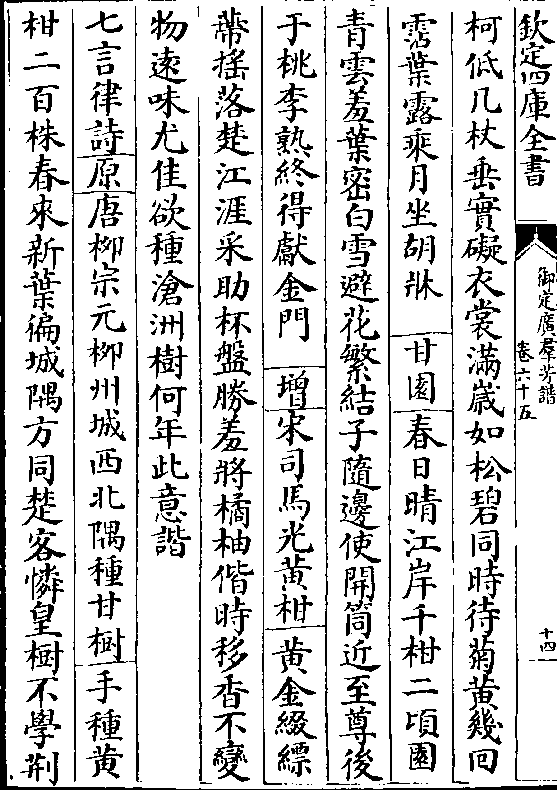 欽定四庫全書
御定廣羣芳譜
卷六十五
十四
柯低几杖垂實礙衣裳滿歲如松碧同時待菊黄幾回
霑葉露乘月坐胡牀　甘園　春日晴江岸千柑二頃園
青雲羞葉密白雪避花繁結子隨邊使開筒近至尊後
于桃李熟終得獻金門　增　宋司馬光黄柑　黄金綴縹
蔕揺落楚江涯采助杯盤勝羞將橘柚偕時移香不變
物遠味尤佳欲種滄洲樹何年此意諧
七言律詩　原　唐柳宗元柳州城西北隅種甘樹　手種黄
柑二百株春來新葉徧城隅方同楚客憐皇樹不學荆